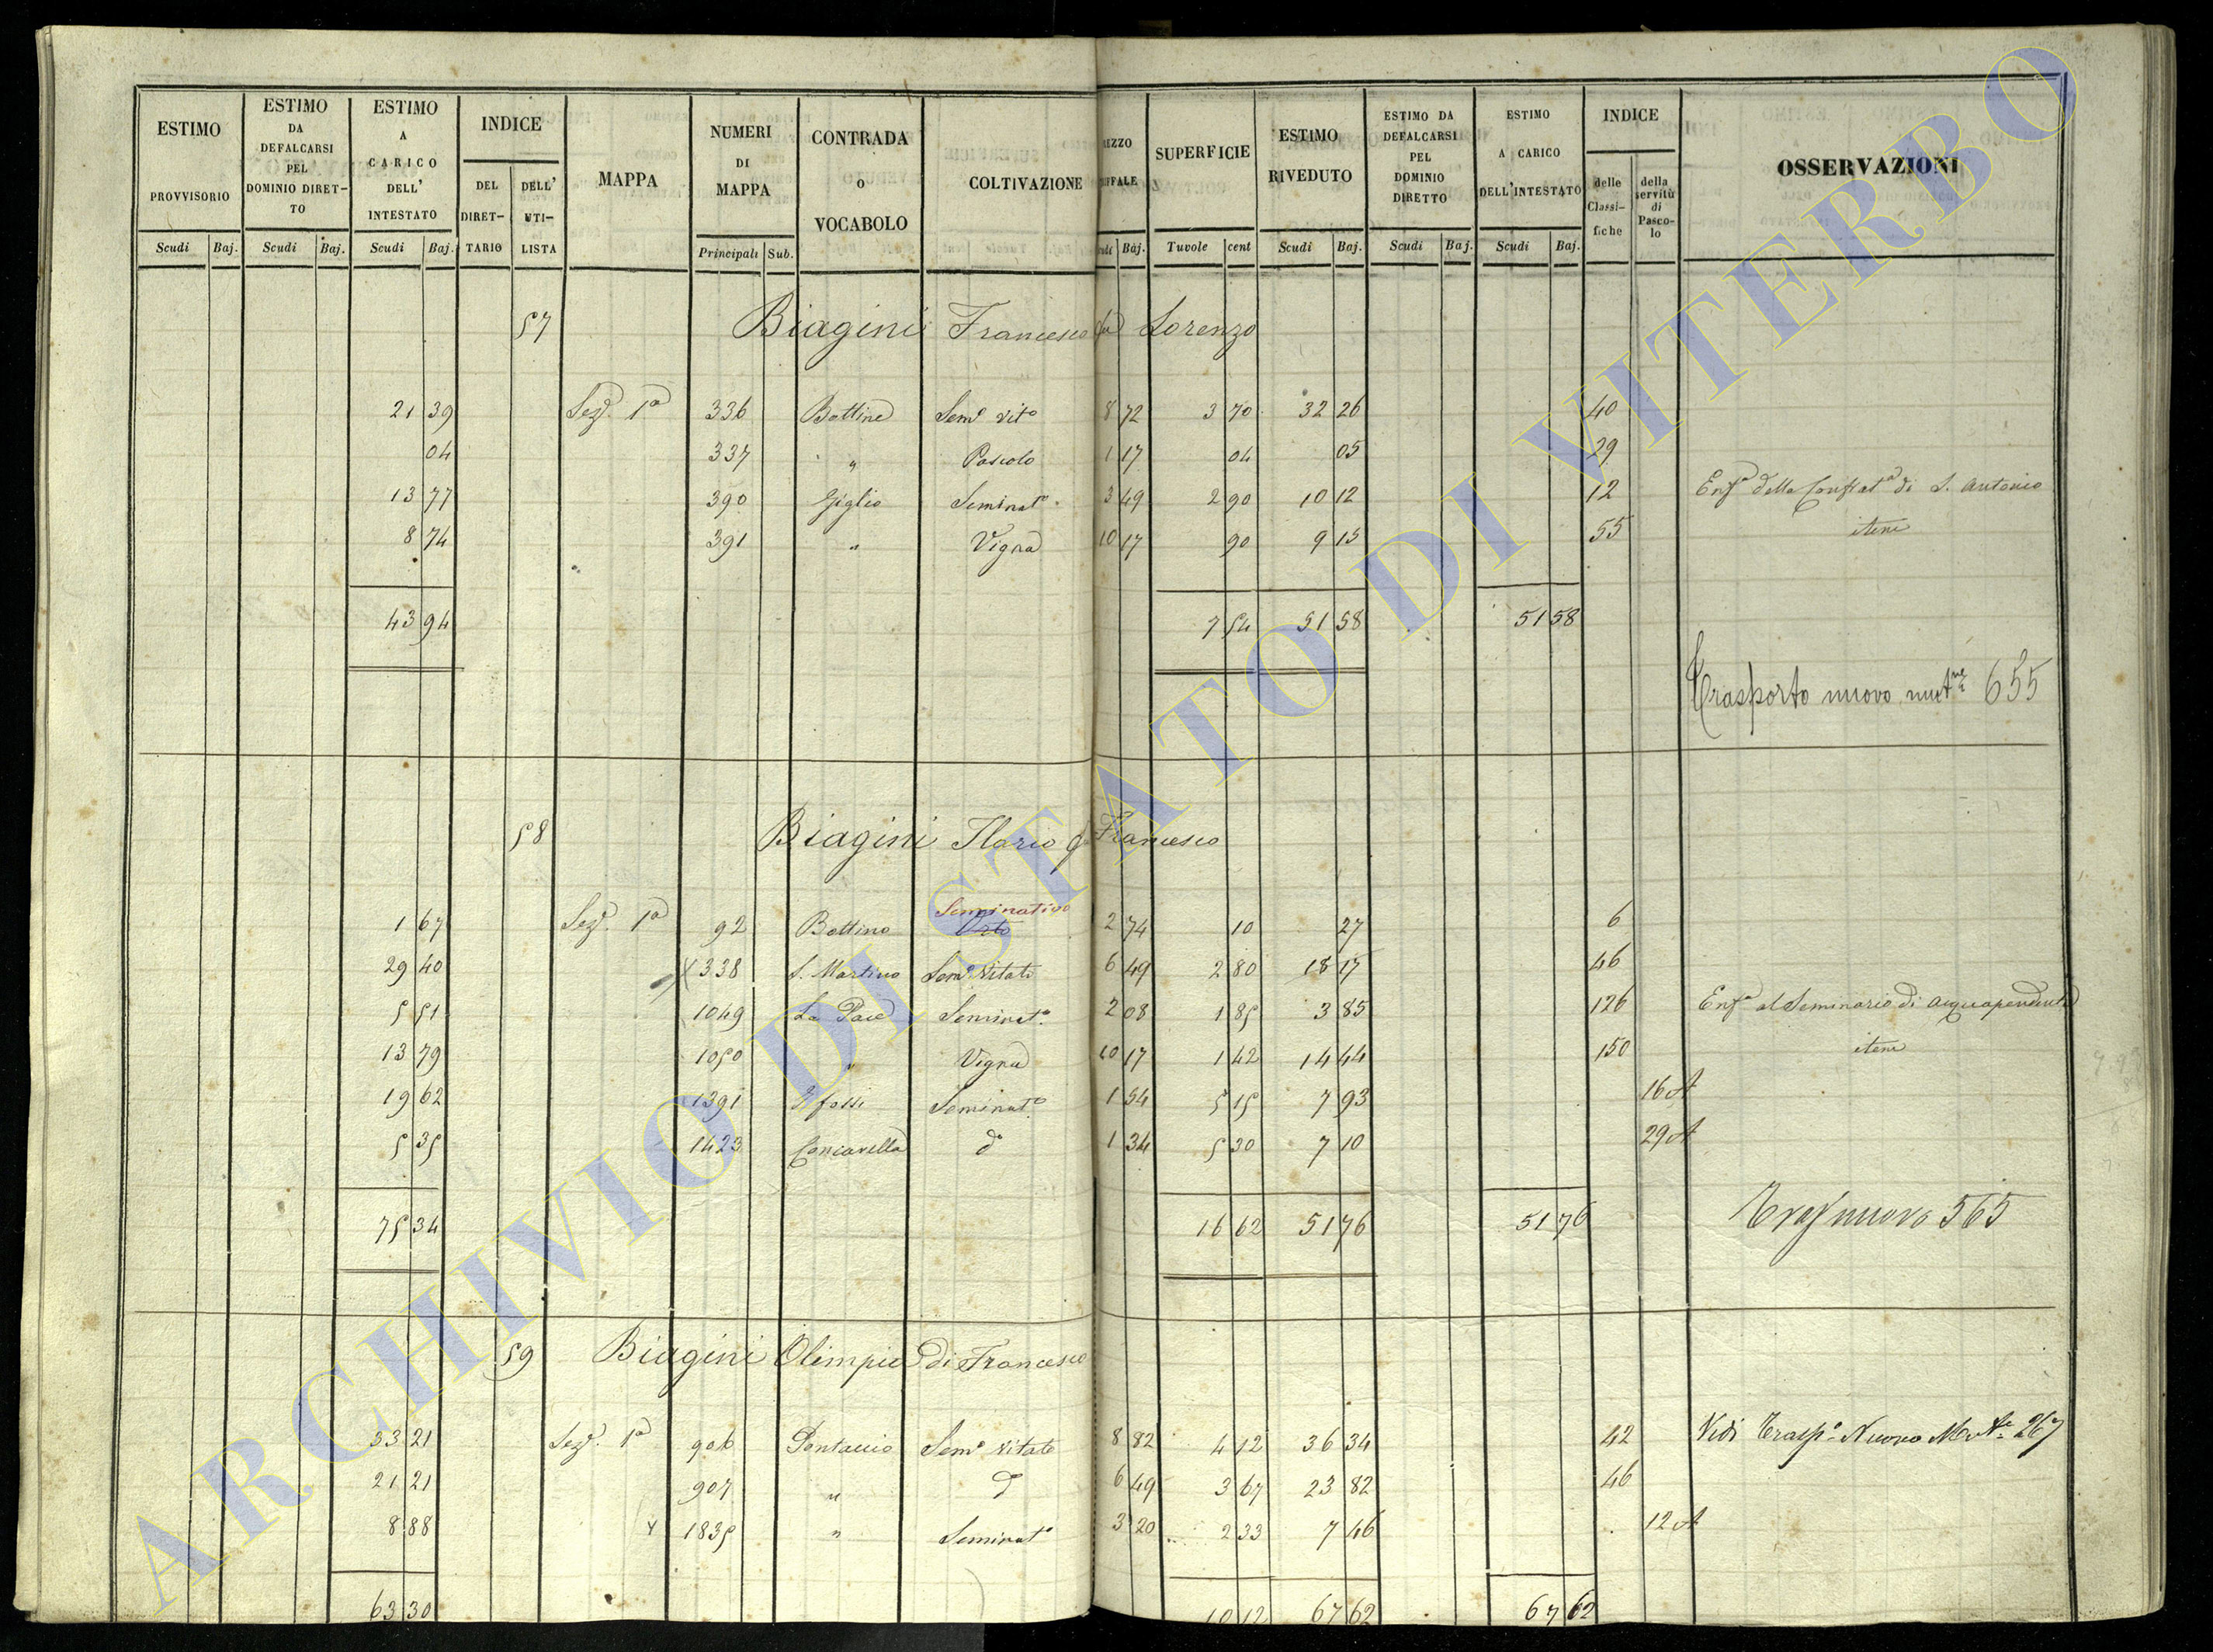 ESTIMO PROVVISORIO Scudi Baj.
ESTIMO DA DEFALCARSI PEL DOMINIO DIRET- TO Scudi Baj.
ESTIMO A CARICO DELL' INTESTATO Scudi Baj.
INDICE DEL DIRET- TARIO DELL' UTI- LISTA
MAPPA
NUMERI DI MAPPA Principali Sub.
CONTRADA o VOCABOLO
COLTIVAZIONE
EZZO UFFALE Baj.
SUPERFICIE Tavole cent
ESTIMO RIVEDUTO Scudi Baj.
ESTIMO DA DEFALCARSI PEL DOMINIO DIRETTO Scudi Baj.
ESTIMO A CARICO DELL'INTESTATO Scudi Baj.
INDICE delle Classi- fiche della servitù di Pasco- lo
OSSERVAZIONI
57 Biagini Francesco qu Lorenzo
21 39 Seze. 1a 336 Bottine Semo vito 8 72 3 70 32 26 40
04 337 " Pascolo 1 17 04 05 29
13 77 390 Giglio Seminato 3 49 2 90 10 12 12 Enfa della Confrata di S. Antonio
8 74 391 " Vigna 10 17 90 9 15 55 item
43 94 7 54 51 58 51 58
Trasporto nuovo 655
58 Biagini Ilario q Francesco
Seminativo
1 67 Seze. 1a 92 Bottino Orto 2 74 10 27 6
29 40 X 338 S. Martino Semo Vitato 6 49 2 80 18 17 46
5 51 1049 La Pace Seminato 2 08 1 85 3 85 126 Enfa al Seminario di Acquapendente
13 79 1050 " Vigna 10 17 1 42 14 44 150 item
19 62 1391 I fossi Seminato 1 54 5 15 7 93 16 A
5 35 1423 Concarella do 1 34 5 30 7 10 29 A
75 34 16 62 51 76 51 76
Trasp nuovo 565
59 Biagini Olimpia di Francesco
33 21 Seze. 1a 906 Pontaccio Semo Vitato 8 82 4 12 36 34 42 Vedi Traspo Nuovo 267
21 21 907 " do 6 49 3 67 23 82 46
8 88 x 1835 " Seminato 3 20 2 33 7 46 12 A
63 30 10 12 67 62 67 62
ARCHIVIO DI STATO DI VITERBO